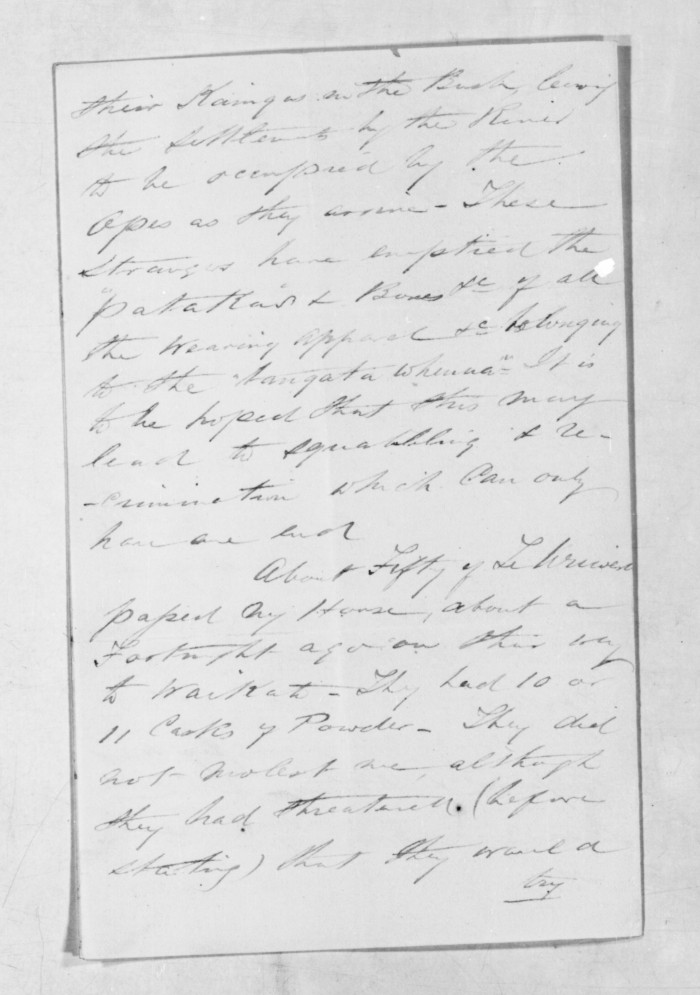 their Kaingas in the Bush, leaving
the Settlements by the River
to be occupied by the
Apes as they arrive - These
strangers have emptied the
"patakas" & Boxes &c of all
the wearing apparel &c belonging
to the "tangata whenua" - It is
to be hoped that this may
lead to squabbling & re-
-crimination which can only
have one end
About Fifty of Te
passed my House, about a
Fortnight ago on their way
to Waikato - They had 10 or
11 Casks of Powder - They did
not molest me, although
they had threatened (before
starting) that they would
try